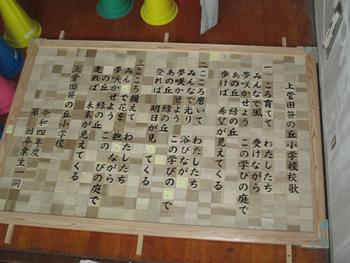 上菅田笹の丘小学校校歌
一 こころ育てて わたしたち
みんなで風 受けながら
夢咲かせよう この学びの庭で
あの丘 緑の丘
歩けば 希望が見えてくる
二 こころ磨いて わたしたち
みんなで光り 浴びながら
夢咲かせよう この学びの庭で
あの丘 緑の丘
登れば 明日が見えてくる
三 こころ揃えて わたしたち
みんなで花を 抱きながら
夢咲かせよう この学びの庭で
あの丘 緑の丘
走れば 未来が見えてくる
上菅田笹の丘小学校
令和四年度
回卒業生一同